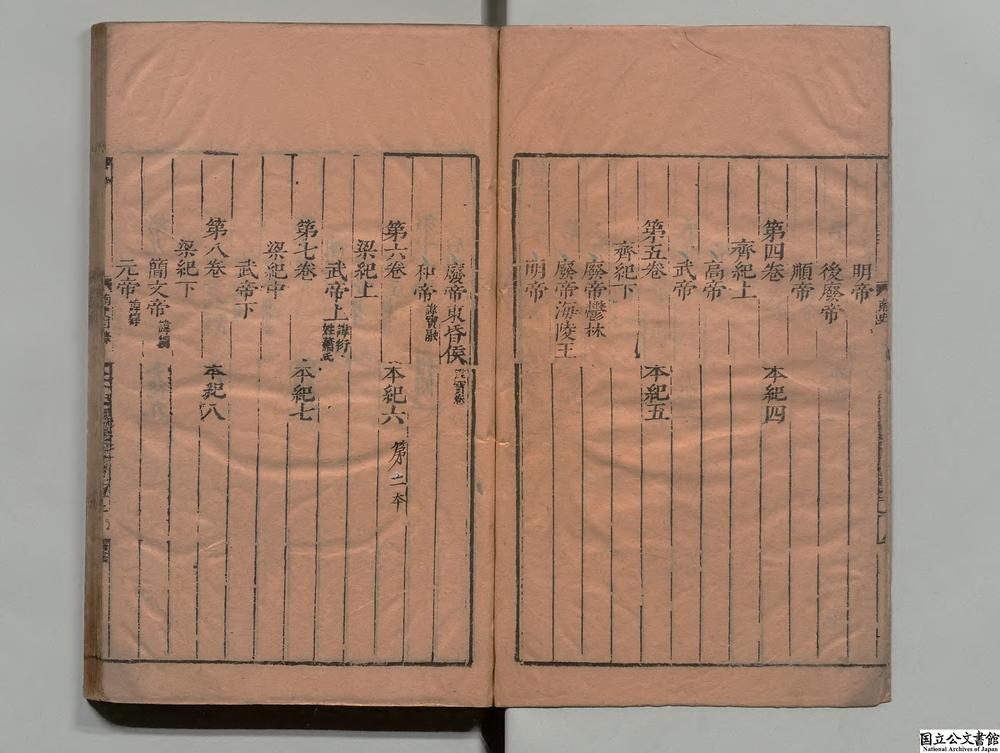 明帝
後廢帝
順帝
第四卷 本紀四
齊紀上
高帝
武帝
第五卷 本紀五
齊紀下
廢帝鬱林
廢帝海陵王
明帝
廢帝東昏侯 諱寳卷
和帝 諱寳融
第六卷 本紀六 第二本
梁紀上
武帝上 諱衍 姓蕭氏
第七卷 本紀七
梁紀中
武帝下
第八卷 本紀八
梁紀下
簡文帝 諱綱
元帝 諱繹
国立公文書館
National Archives of Japan